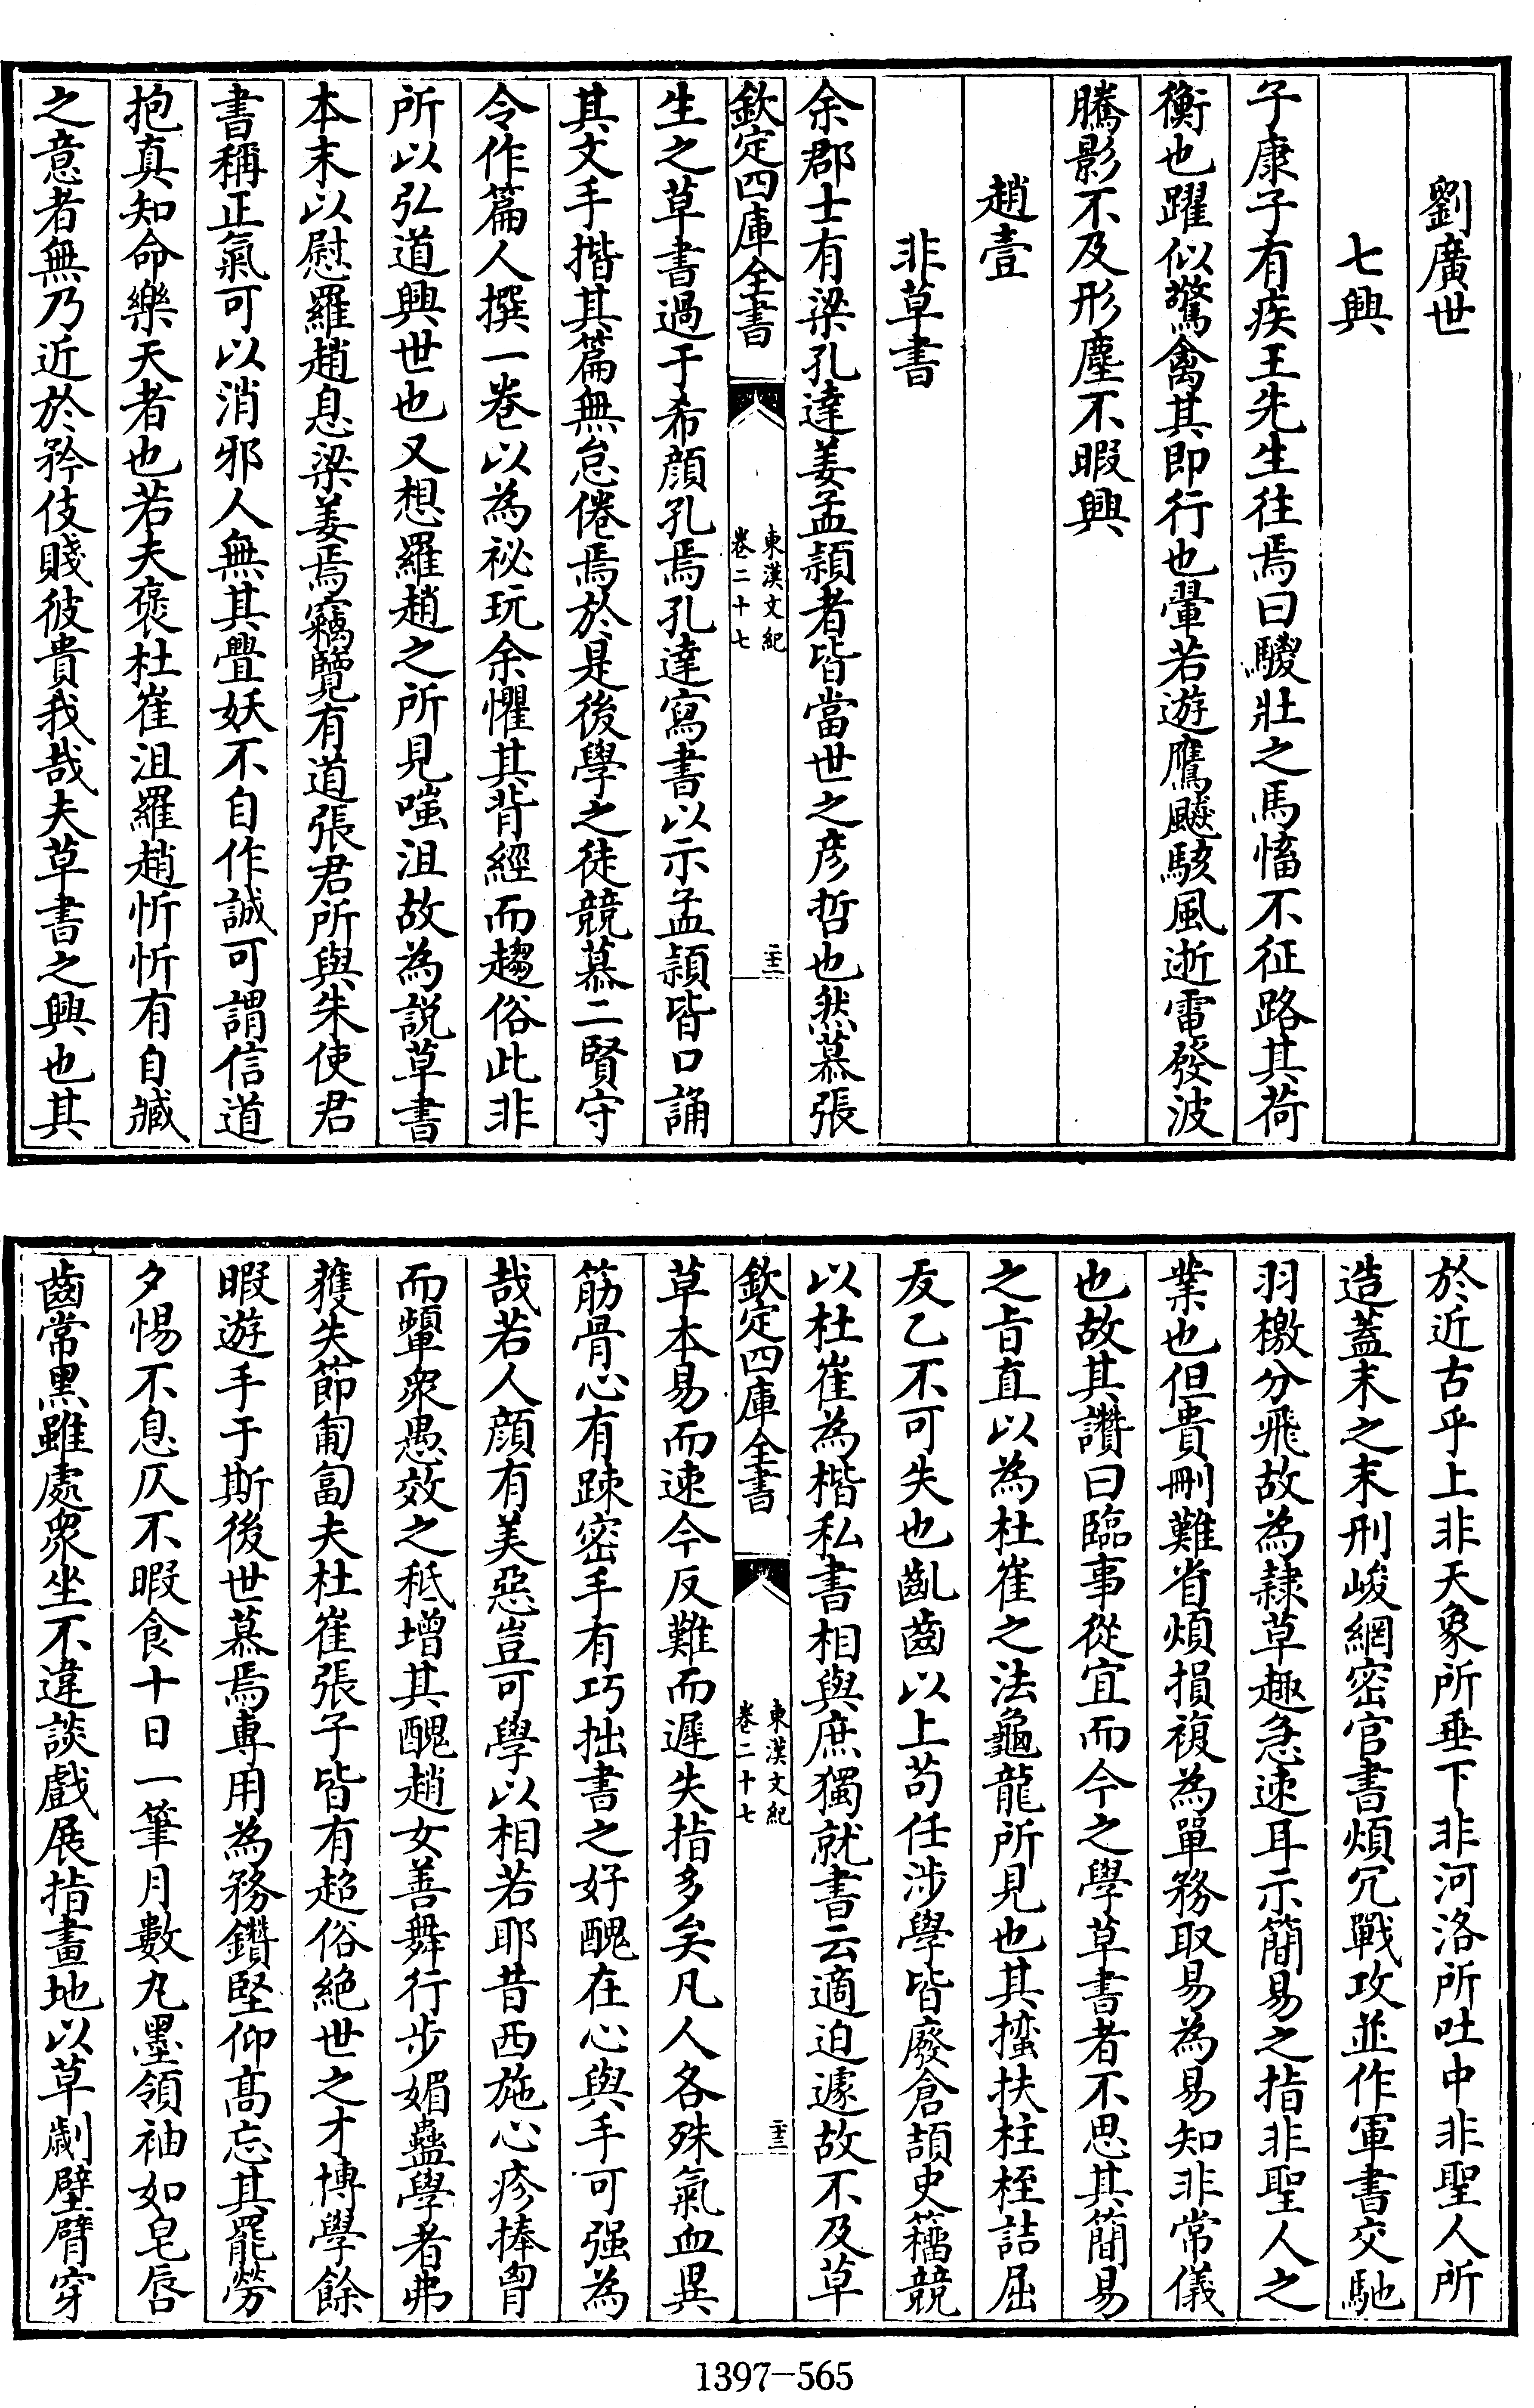 劉廣世
七興
子康子有疾王先生往焉曰騣壯之馬慉不征路其荷
衡也躍似驚禽其即行也翬若遊鷹飈駭風逝電發波
騰影不及形塵不暇興
趙壹
非草書
余郡士有梁孔達姜孟穎者皆當世之彦哲也然慕張
欽定四庫全書
東漢文紀
卷二十七
二十二
生之草書過于希顔孔焉孔達寫書以示孟穎皆口誦
其文手揩其篇無怠倦焉於是後學之徒競慕二賢守
令作篇人撰一卷以為祕玩余懼其背經而趨俗此非
所以弘道興世也又想羅趙之所見嗤沮故為説草書
本末以慰羅趙息梁姜焉竊覽有道張君所與朱使君
書稱正氣可以消邪人無其舋妖不自作誠可謂信道
抱真知命樂天者也若夫褒杜崔沮羅趙忻忻有自臧
之意者無乃近於矜伎賤彼貴我哉夫草書之興也其
於近古乎上非天象所垂下非河洛所吐中非聖人所
造蓋末之末刑峻網密官書煩冗戰攻並作軍書交馳
羽檄分飛故為隷草趣急速耳示簡易之指非聖人之
業也但貴刪難省煩損複為單務取易為易知非常儀
也故其讚曰臨事從宜而今之學草書者不思其簡易
之旨直以為杜崔之法龜龍所見也其䖤扶柱桎詰屈
友乙不可失也齓齒以上苟任涉學皆廢倉頡史籀競
以杜崔為楷私書相與庶獨就書云適迫遽故不及草
欽定四庫全書
東漢文紀
卷二十七
二十三
草本易而速今反難而遲失指多矣凡人各殊氣血異
筋骨心有疎密手有巧拙書之好醜在心與手可强為
哉若人顔有美惡豈可學以相若耶昔西施心疹捧胷
而顰衆愚效之秪增其醜趙女善舞行步媚蠱學者弗
獲失節匍匐夫杜崔張子皆有超俗絶世之才博學餘
暇遊手于斯後世慕焉專用為務鑽堅仰高忘其罷勞
夕惕不息仄不暇食十日一筆月數丸墨領袖如皂唇
齒常黒雖處衆坐不違談戲展指畫地以草劌壁臂穿
1397-565